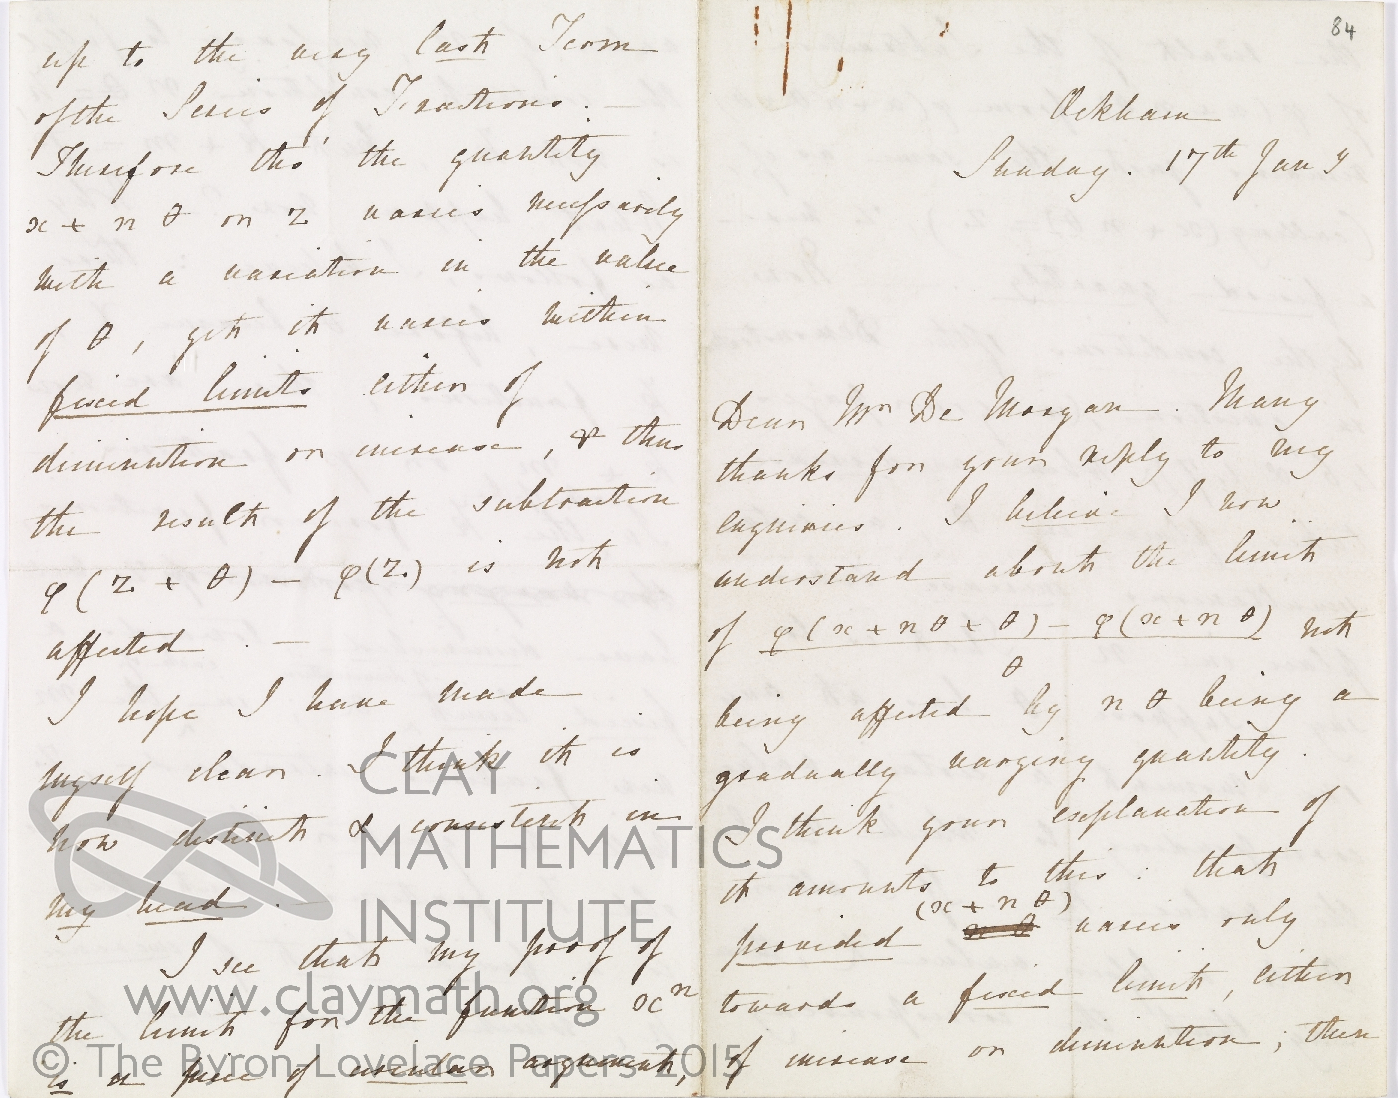 up to the very last Term
of the Series of Fractions. —
Therefore tho' the quantity
x + n θ or Z varies necessarily
with a variation in the value
of θ, yet it varies within
fixed limits either of
diminution or increase, & thus
the result of the subtraction
φ(Z + θ) − φ(Z) is not
affected. —
I hope I have made
myself clear. I think it is
now distinct & consistent in
my head.
I see that my proof of
the limit for the function xⁿ
is a piece of circular argument,
84
Ockham
Sunday. 17th Jany
Dear Mr De Morgan. Many
thanks for your reply to my
enquiries. I believe I now
understand about the limit
of φ(x + nθ + θ) − φ(x + nθ) not
θ
being affected by nθ being a
gradually varying quantity.
I think your explanation of
it amounts to this: that
(x + nθ)
provided nθ varies only
towards a fixed limit, either
of increase or diminution; then
CLAY
MATHEMATICS
INSTITUTE
www.claymath.org
© The Byron-Lovelace Papers 2015